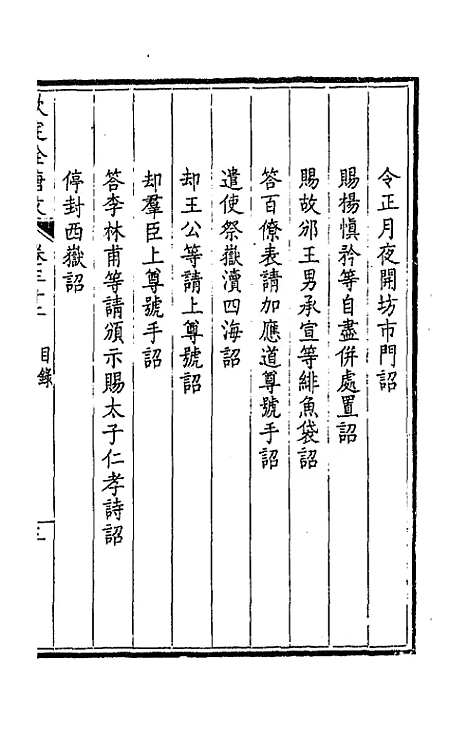 令正月夜開坊市門詔
賜楊愼矜等自盡併處置詔
賜故邠王男承宣等緋魚袋詔
答百僚表請加應道尊號手詔
遣使祭嶽瀆四海詔
却王公等請上尊號詔
却羣臣上尊號手詔
答李林甫等請頒示賜太子仁孝詩詔
停封西嶽詔
欽定全唐文 卷三十二 目錄 三